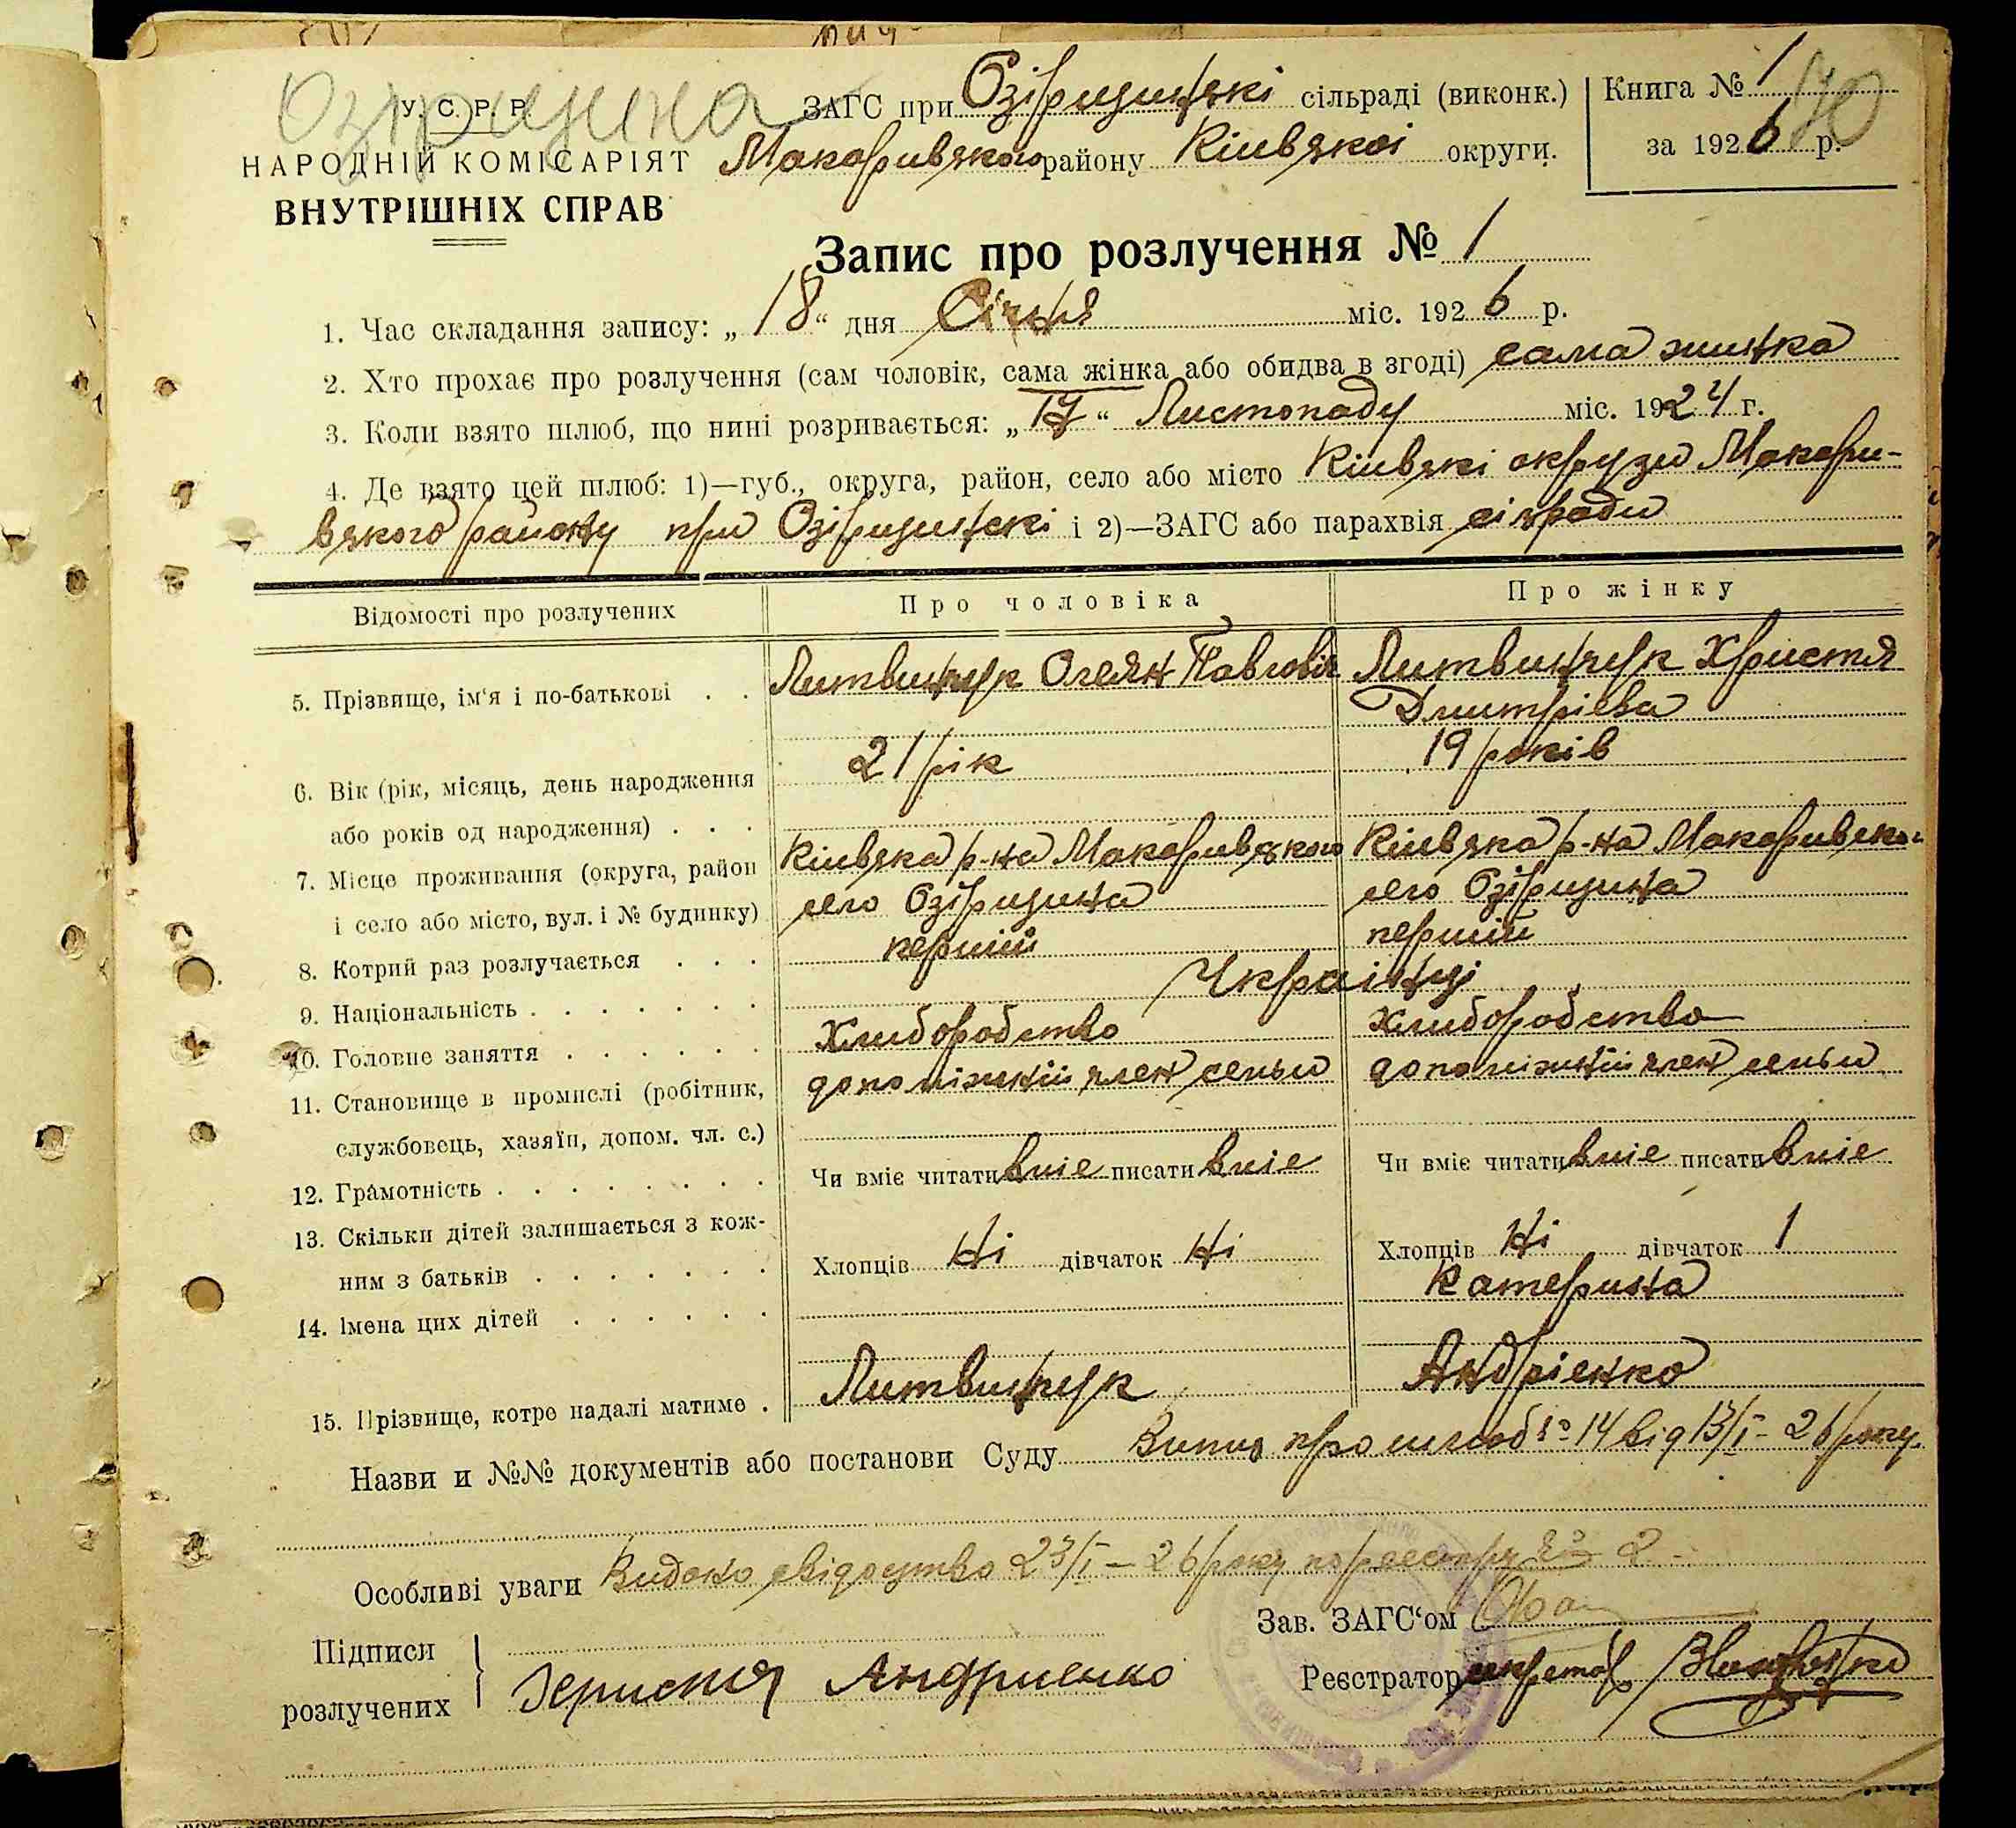 Озирщина
У. С. Р. Р.
НАРОДНІЙ КОМІСАРІЯТ
ВНУТРІШНІХ СПРАВ
ЗАГС при Озірщинскі сільраді (виконк.)
Макаривского району Кіивскоі округи.
Книга № 1
за 1926 р.
70
Запис про розлучення № 1
1. Час складання запису: „18“ дня Січня міс. 1926 р.
2. Хто прохає про розлучення (сам чоловік, сама жінка або обидва в згоді) сама жинка
3. Коли взято шлюб, що нині розривається: „17“ Листопаду міс. 1924 г.
4. Де взято цей шлюб: 1)—губ., округа, район, село або місто Кіивскі округи Макари-
вского району при Озірщинскі і 2)—ЗАГС або парахвія сізради
Відомості про розлучених
Про чоловіка
Про жінку
5. Прізвище, ім'я і по-батькові . . Литвинчук Олеян Павлович Литвинчук Христя
Дмитріева
6. Вік (рік, місяць, день народження
або років од народження) . . . 21 рік 19 років
7. Місце проживання (округа, район
і село або місто, вул. і № будинку)
Кіивска р-на Макаривского
село Озірщина
Кіивска р-на Макаривско
село Озірщина
8. Котрий раз розлучається . . . перший перший
9. Національність . . . . . . . Украінці
10. Головне заняття . . . . . . Хлиборобство хлиборобство
11. Становище в промислі (робітник,
службовець, хазяїн, допом. чл. с.)
допоміжній член семьи допоміжній член семьи
12. Грамотність . . . . . . . . Чи вміє читати вміе писати вміе Чи вміє читати вміе писати вміе
13. Скільки дітей залишається з кож-
ним з батьків . . . . . . .
Хлопців Ні дівчаток Ні Хлопців Ні дівчаток 1
14. Імена цих дітей . . . . . . Катерина
15. Прізвище, котре надалі матиме . Литвинчук Андріенко
Назви и №№ документів або постанови Суду Випис про шлюб № 14 від 13/I - 26 року.
Особливі уваги Видано свідоцтво 23/I - 26 року по реестру № 2
Зав. ЗАГС‘ом
Підписи
розлучених
Христя Андриенко
Реєстратор секретар